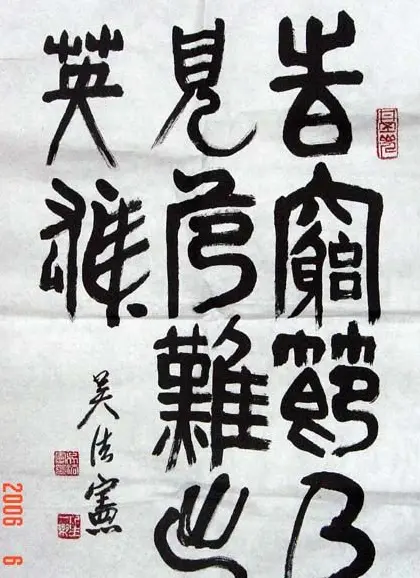 旹窮節乃
見危難出
英雄
吴法憲
2006 6